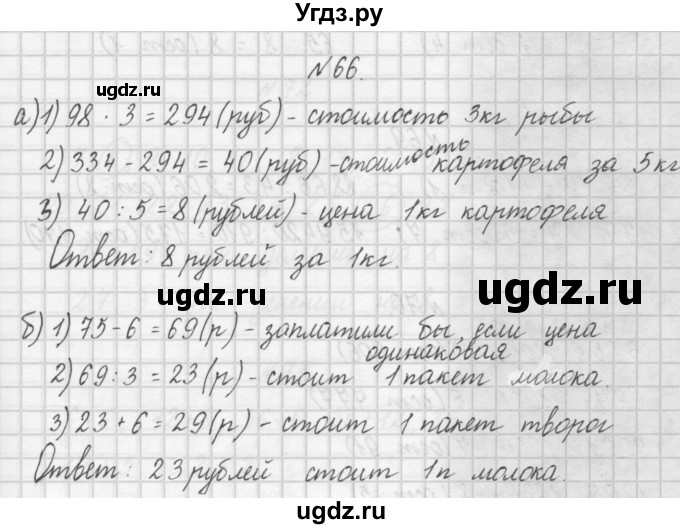 Угдз.ру
№66.
ugdz.ru
а) 1) 98 · 3 = 294 (руб) - стоимость 3кг рыбы
2) 334 - 294 = 40 (руб) - стоимость картофеля за 5кг
ugdz.ru ugdz.ru
3) 40 : 5 = 8 (рублей) - цена 1кг картофеля
Ответ: 8 рублей за 1кг.
ugdz.ru ugdz.ru
б) 1) 75 - 6 = 69 (р) - заплатили бы, если цена
одинаковая
2) 69 : 3 = 23 (р) - стоит 1 пакет молока.
ugdz.ru ugdz.ru
3) 23 + 6 = 29 (р) - стоит 1 пакет творог
Ответ: 23 рублей стоит 1п молока.
ugdz.ru ugdz.ru